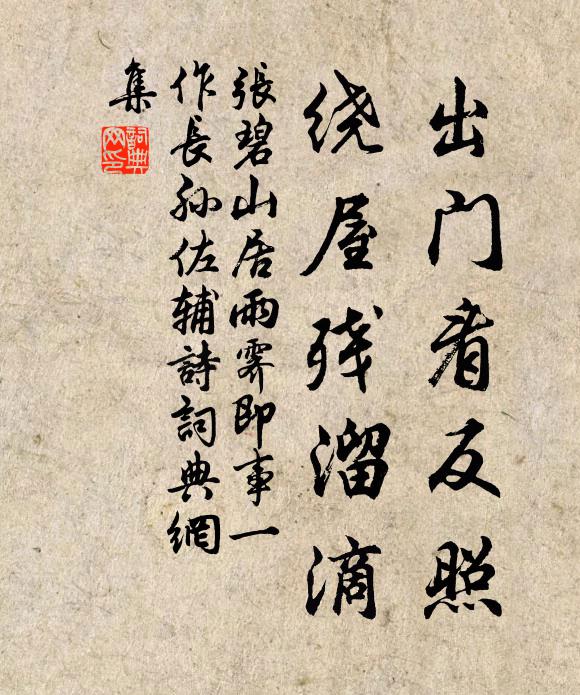 出门看反照
绕屋残溜滴
張碧山居雨霽即事一
作長孫佐輔詩詞典網
集
詞典
网印